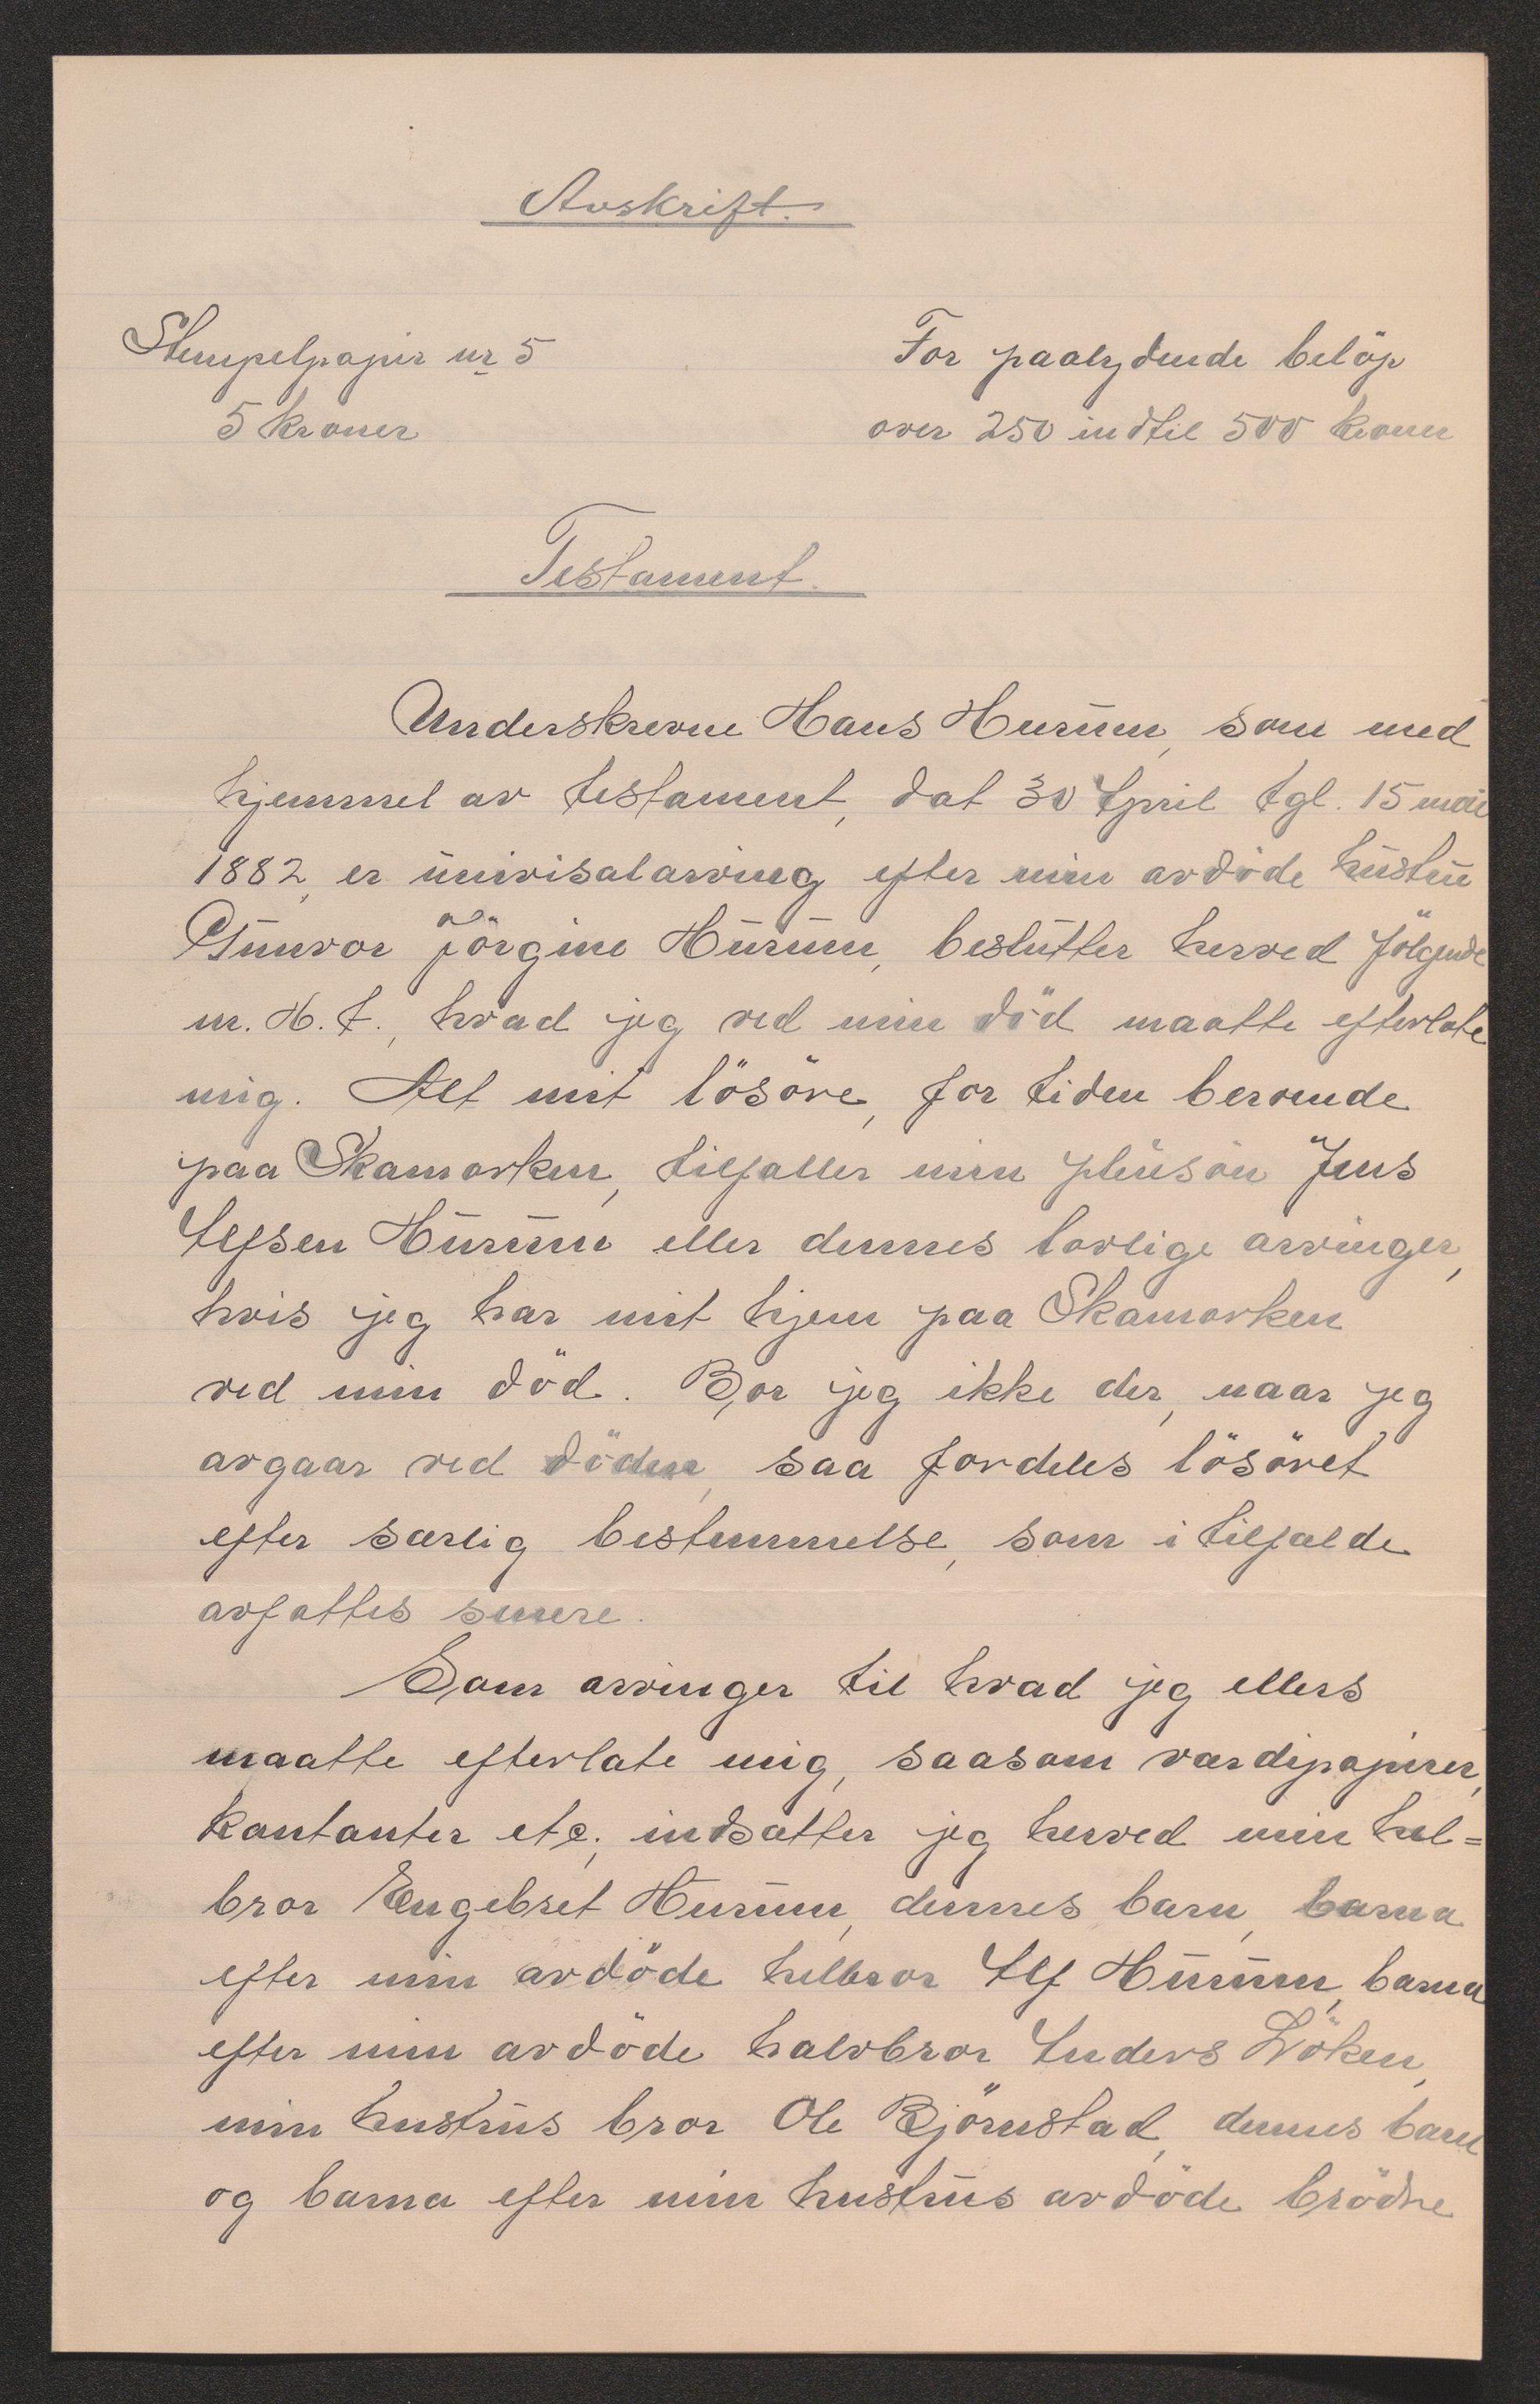 Avskrift.
Stempelpapir nr 5
5 kroner
For paalydende belöp
over 250 indtil 500 kroner
Testament.
Underskrevne Hans Hurum, som med
hjemmel av testament, dat 30 April tgl. 15 mai
1882, er univisalarving efter min avdöde hustru
Gunvor Jörgine Hurum, beslutter herved fölgende
m. H. t., hvad jeg ved min död maatte efterlate
mig. Alt mit lösöre, for tiden beroende
paa Skamarken, tilfaller min pleiesön Jens
Alfsen Hurum eller dennes lovlige arvinger,
hvis jeg har mit hjem paa Skamarken
ved min död. Bor jeg ikke der, naar jeg
avgaar ved döden, saa fordeles lösöret
efter særlig bestemmelse, som i tilfælde
avfattes senere.
Som arvinger til hvad jeg ellers
maatte efterlate mig, saasom værdipapirer,
kontanter etc., indsætter jeg herved min hel=
bror Engebret Hurum, dennes barn, barna
efter min avdöde helbror Alf Hurum, barna
efter min avdöde halvbror Anders Löken,
min hustrus bror Ole Björnstad, dennes barn
og barna efter min hustrus avdöde brödre